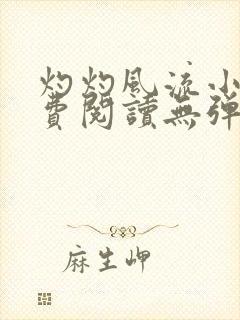 灼灼風流小
費閱讀無彈
麻生岬